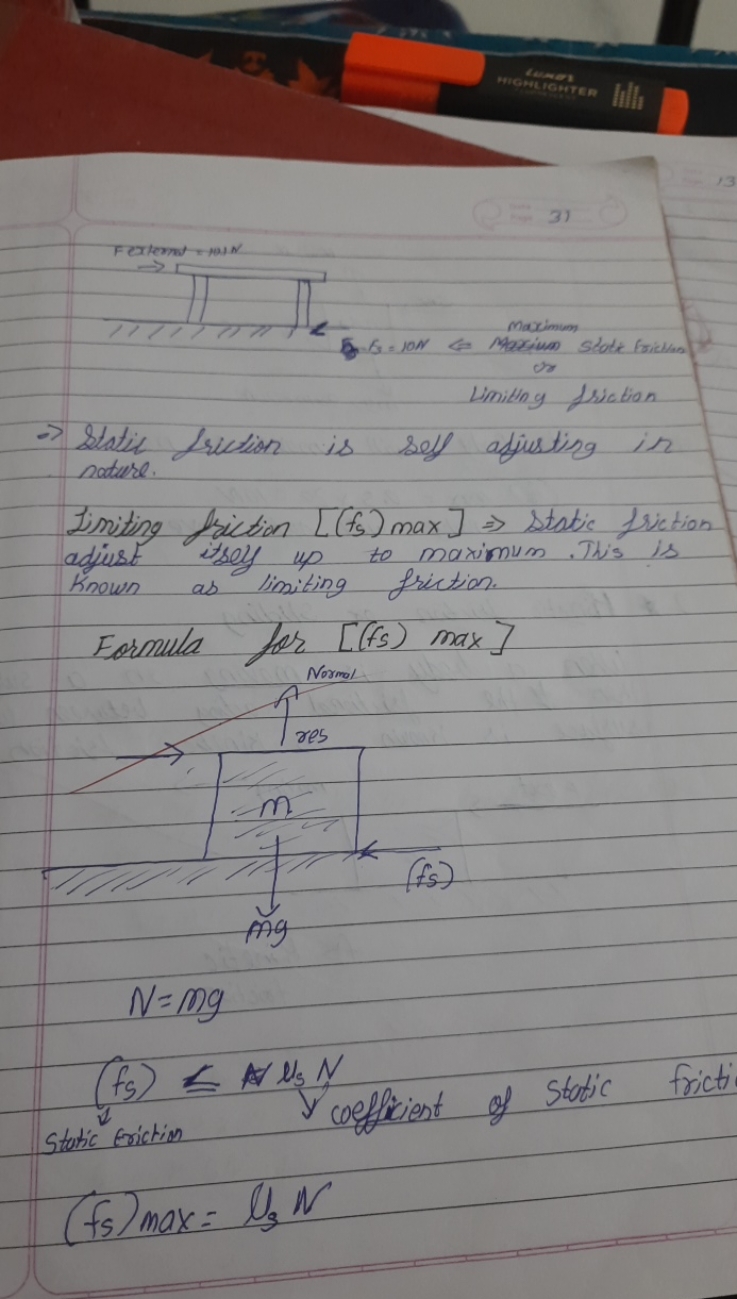 Luxor
HIGHLIGHTER
13
Date
Page 31
F external = 10 N
fs = 10N ⇐ Maxium Static friction
Maximum
or
Limiting friction
=> Static friction is self adjusting in
nature.
Limiting friction [(fs) max] => Static friction
adjust itself up to maximum. This is
Known as limiting friction.
Formula for [(fs) max]
Normal
res
m
(fs)
mg
N = mg
(fs) ≤ μs N
coefficient of static fricti
Static friction
(fs) max = μs N